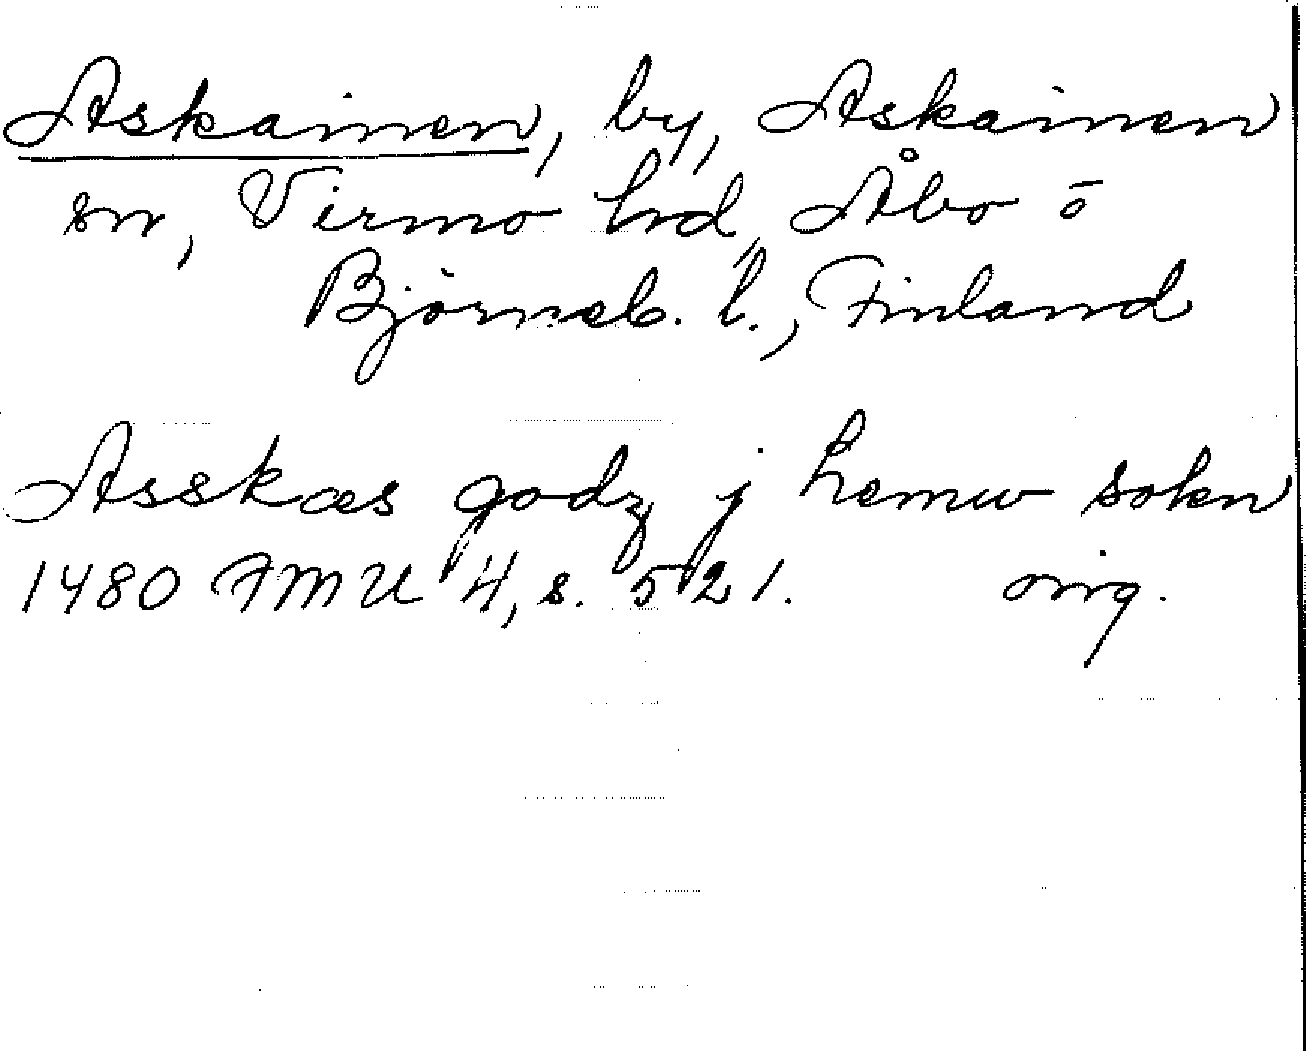 Askainen, by, Askainen
sn, Virmo hd, Åbo o
Björneb. l., Finland
Asskæs godz j hemw sokn
1480 FMU 4, s. 521. orig.